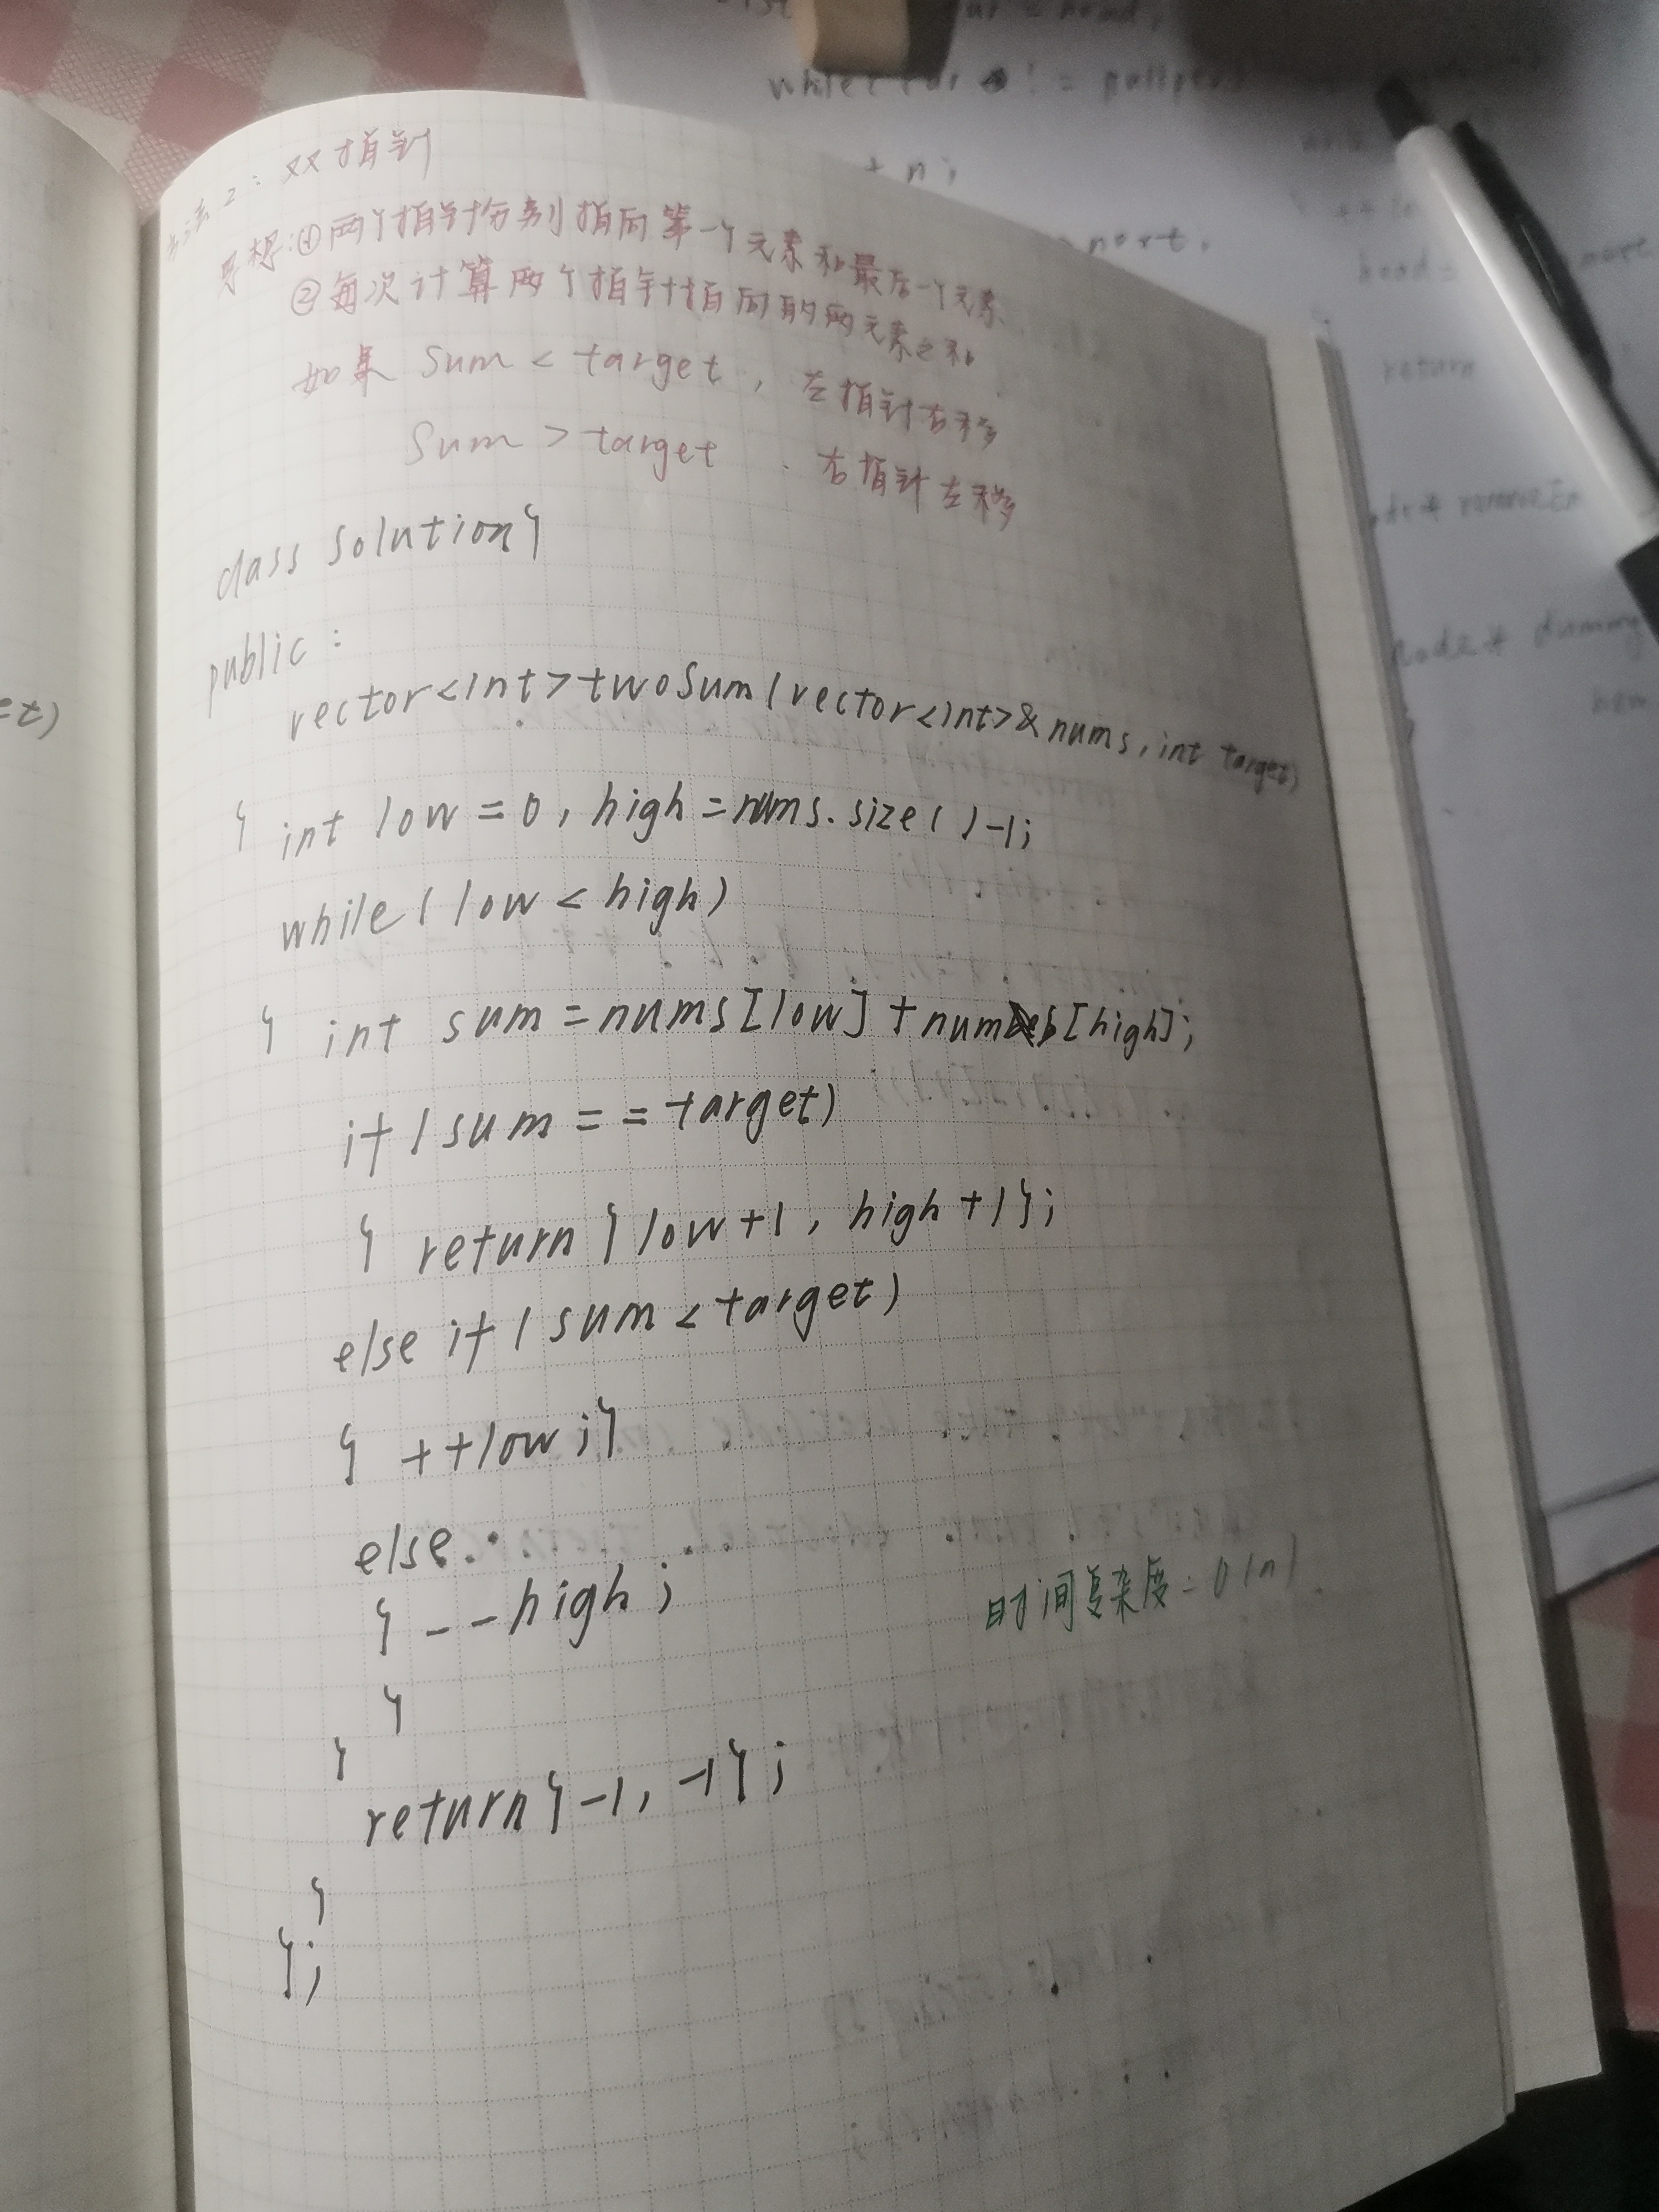 方法2：双指针
思想：①两个指针分别指向第一个元素和最后一个元素
②每次计算两个指针指向的两元素之和
如果 sum < target，左指针右移
sum > target . 右指针左移
class Solution{
public :
vector<int>twoSum(vector<int>& nums, int target)
{ int low = 0, high = nums.size( )-1;
while( low < high)
{ int sum = nums[low] + nums[high];
if (sum == target)
{ return { low+1, high+1};
else if ( sum < target)
{ ++low ;}
else
{ --high ;
时间复杂度 = O(n)
}
}
return{-1, -1};
}
};
et)
while(cur != 
+ n;
return
dummy
new